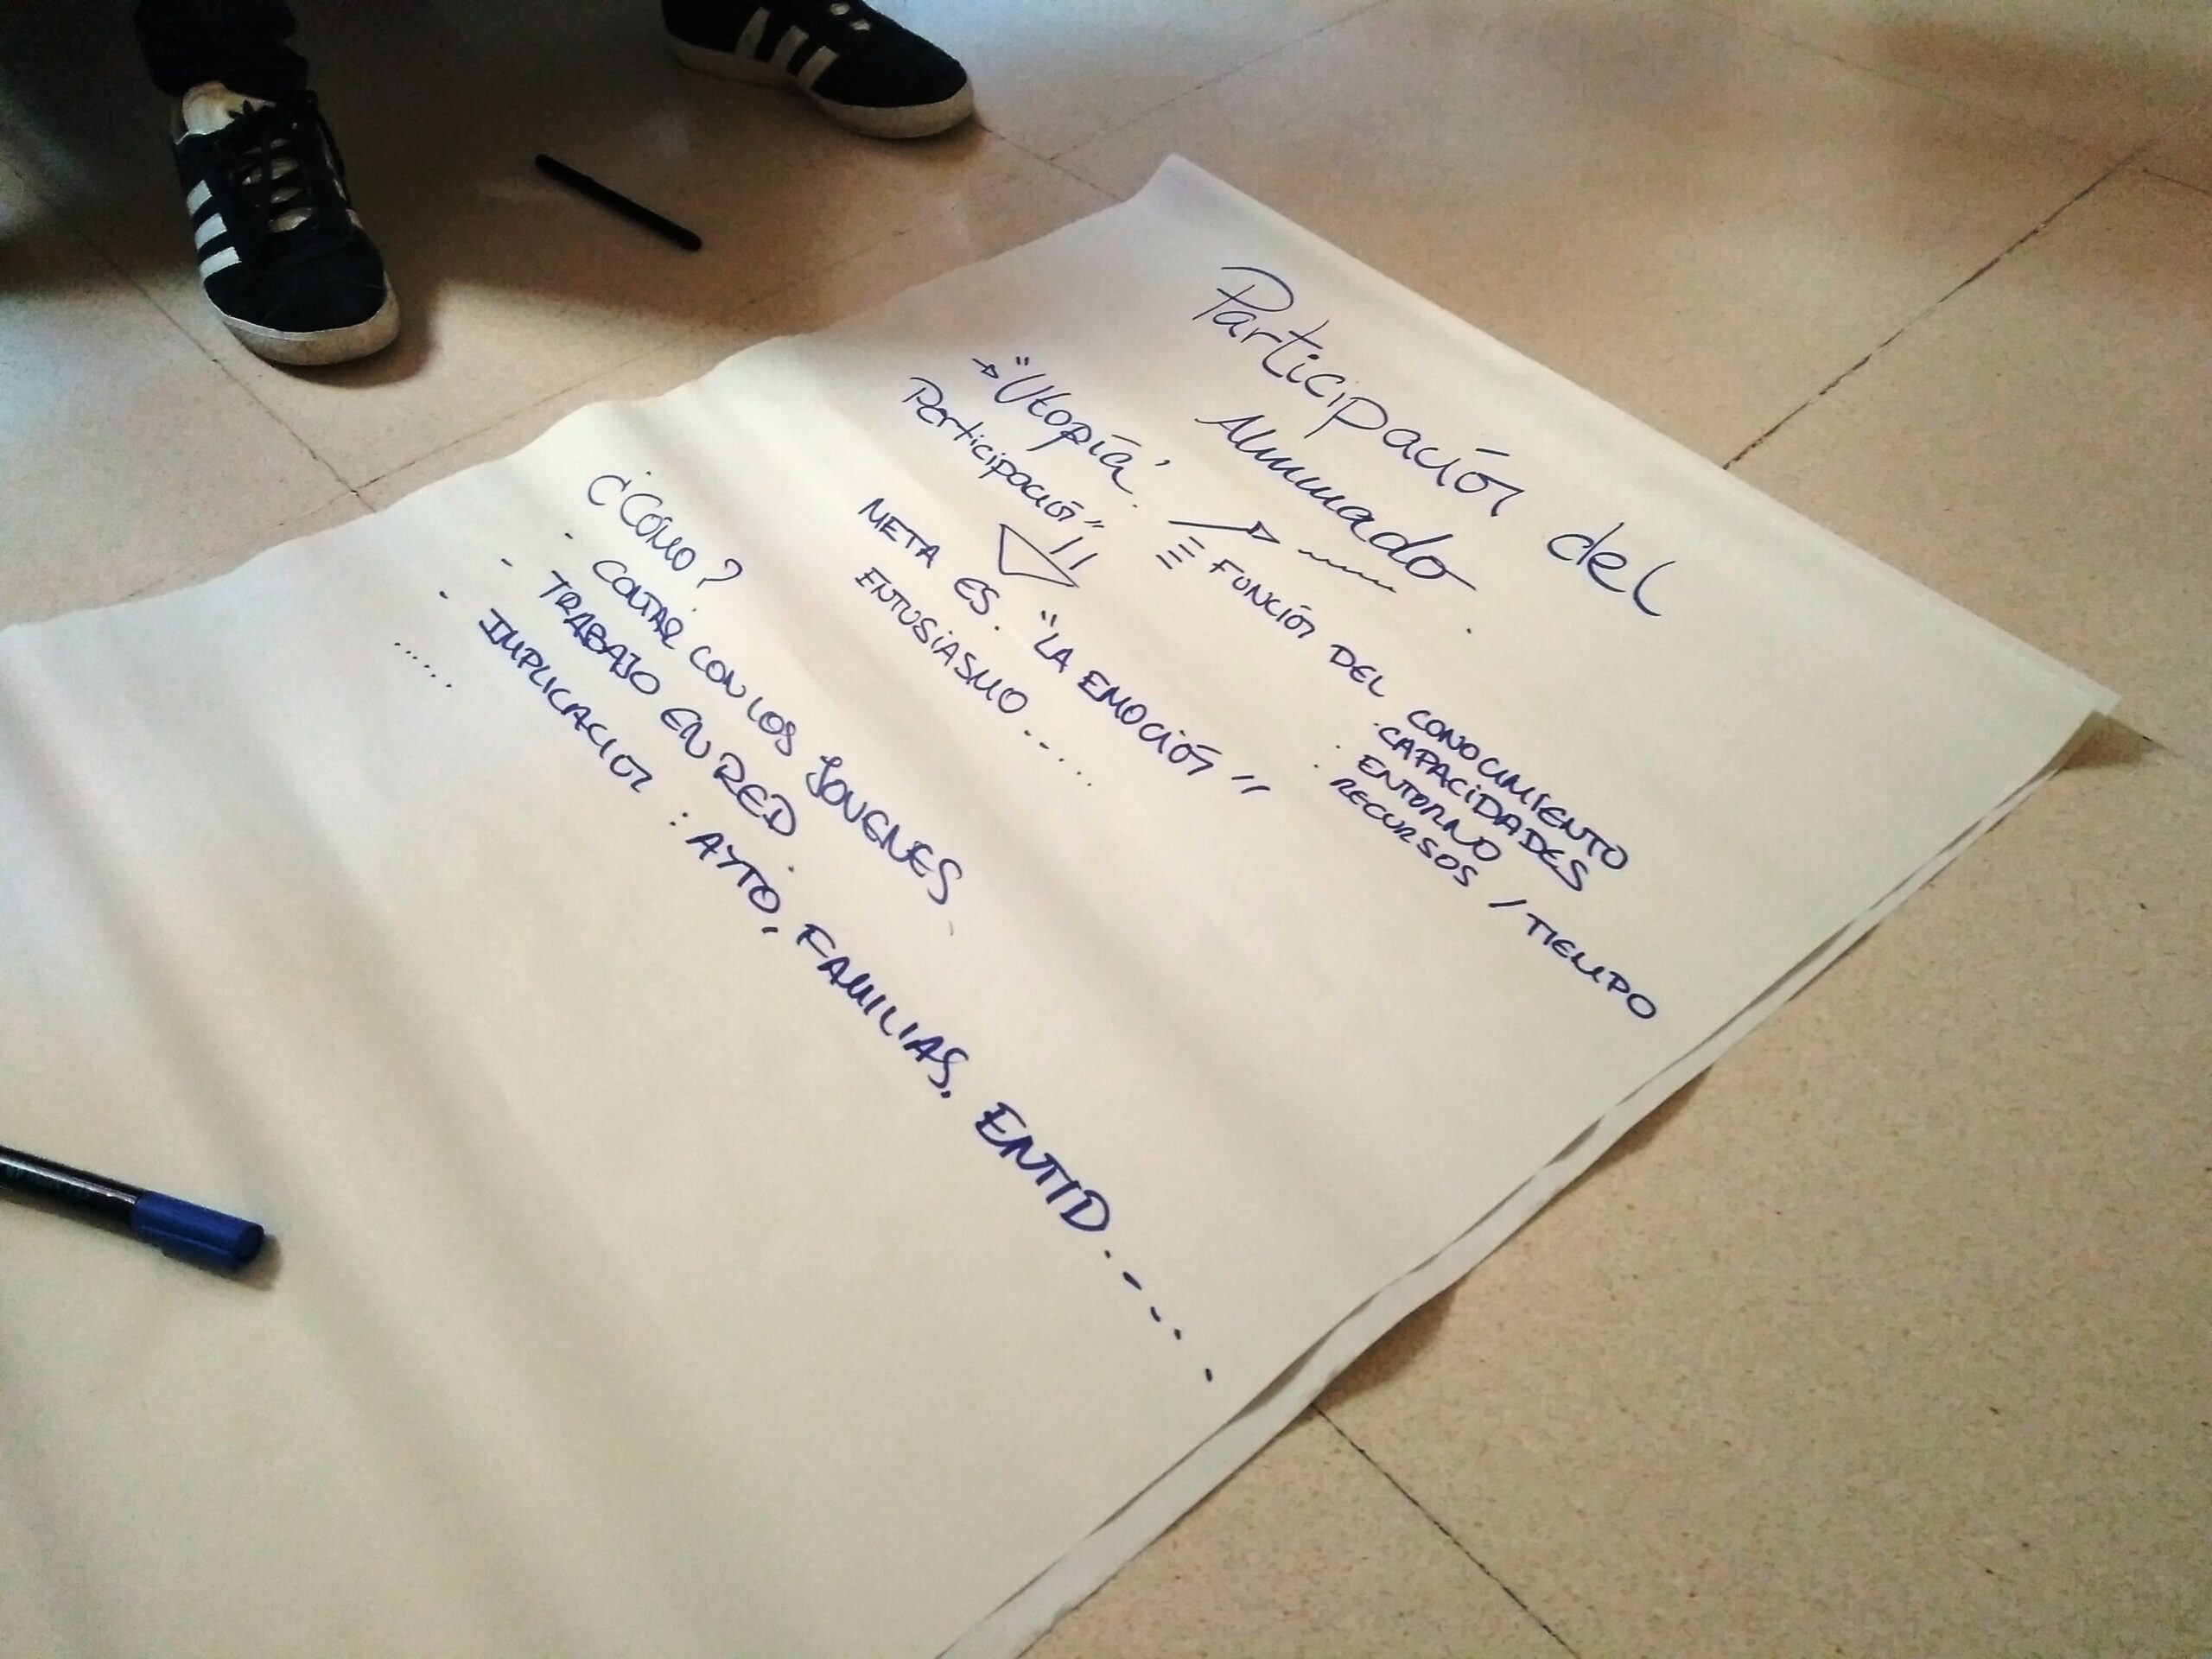 Participación del
Alumnado
→ "Utopía
Participación"
FUNCIÓN DEL CONOCIMIENTO
CAPACIDADES
ENTORNO
RECURSOS / TIEMPO
META ES. "LA EMOCIÓN"
ENTUSIASMO.......
¿CÓMO?
- CONTAR CON LOS JÓVENES
- TRABAJO EN RED
- IMPLICACIÓN : AYTO, FAMILIAS, ENTID.....
......